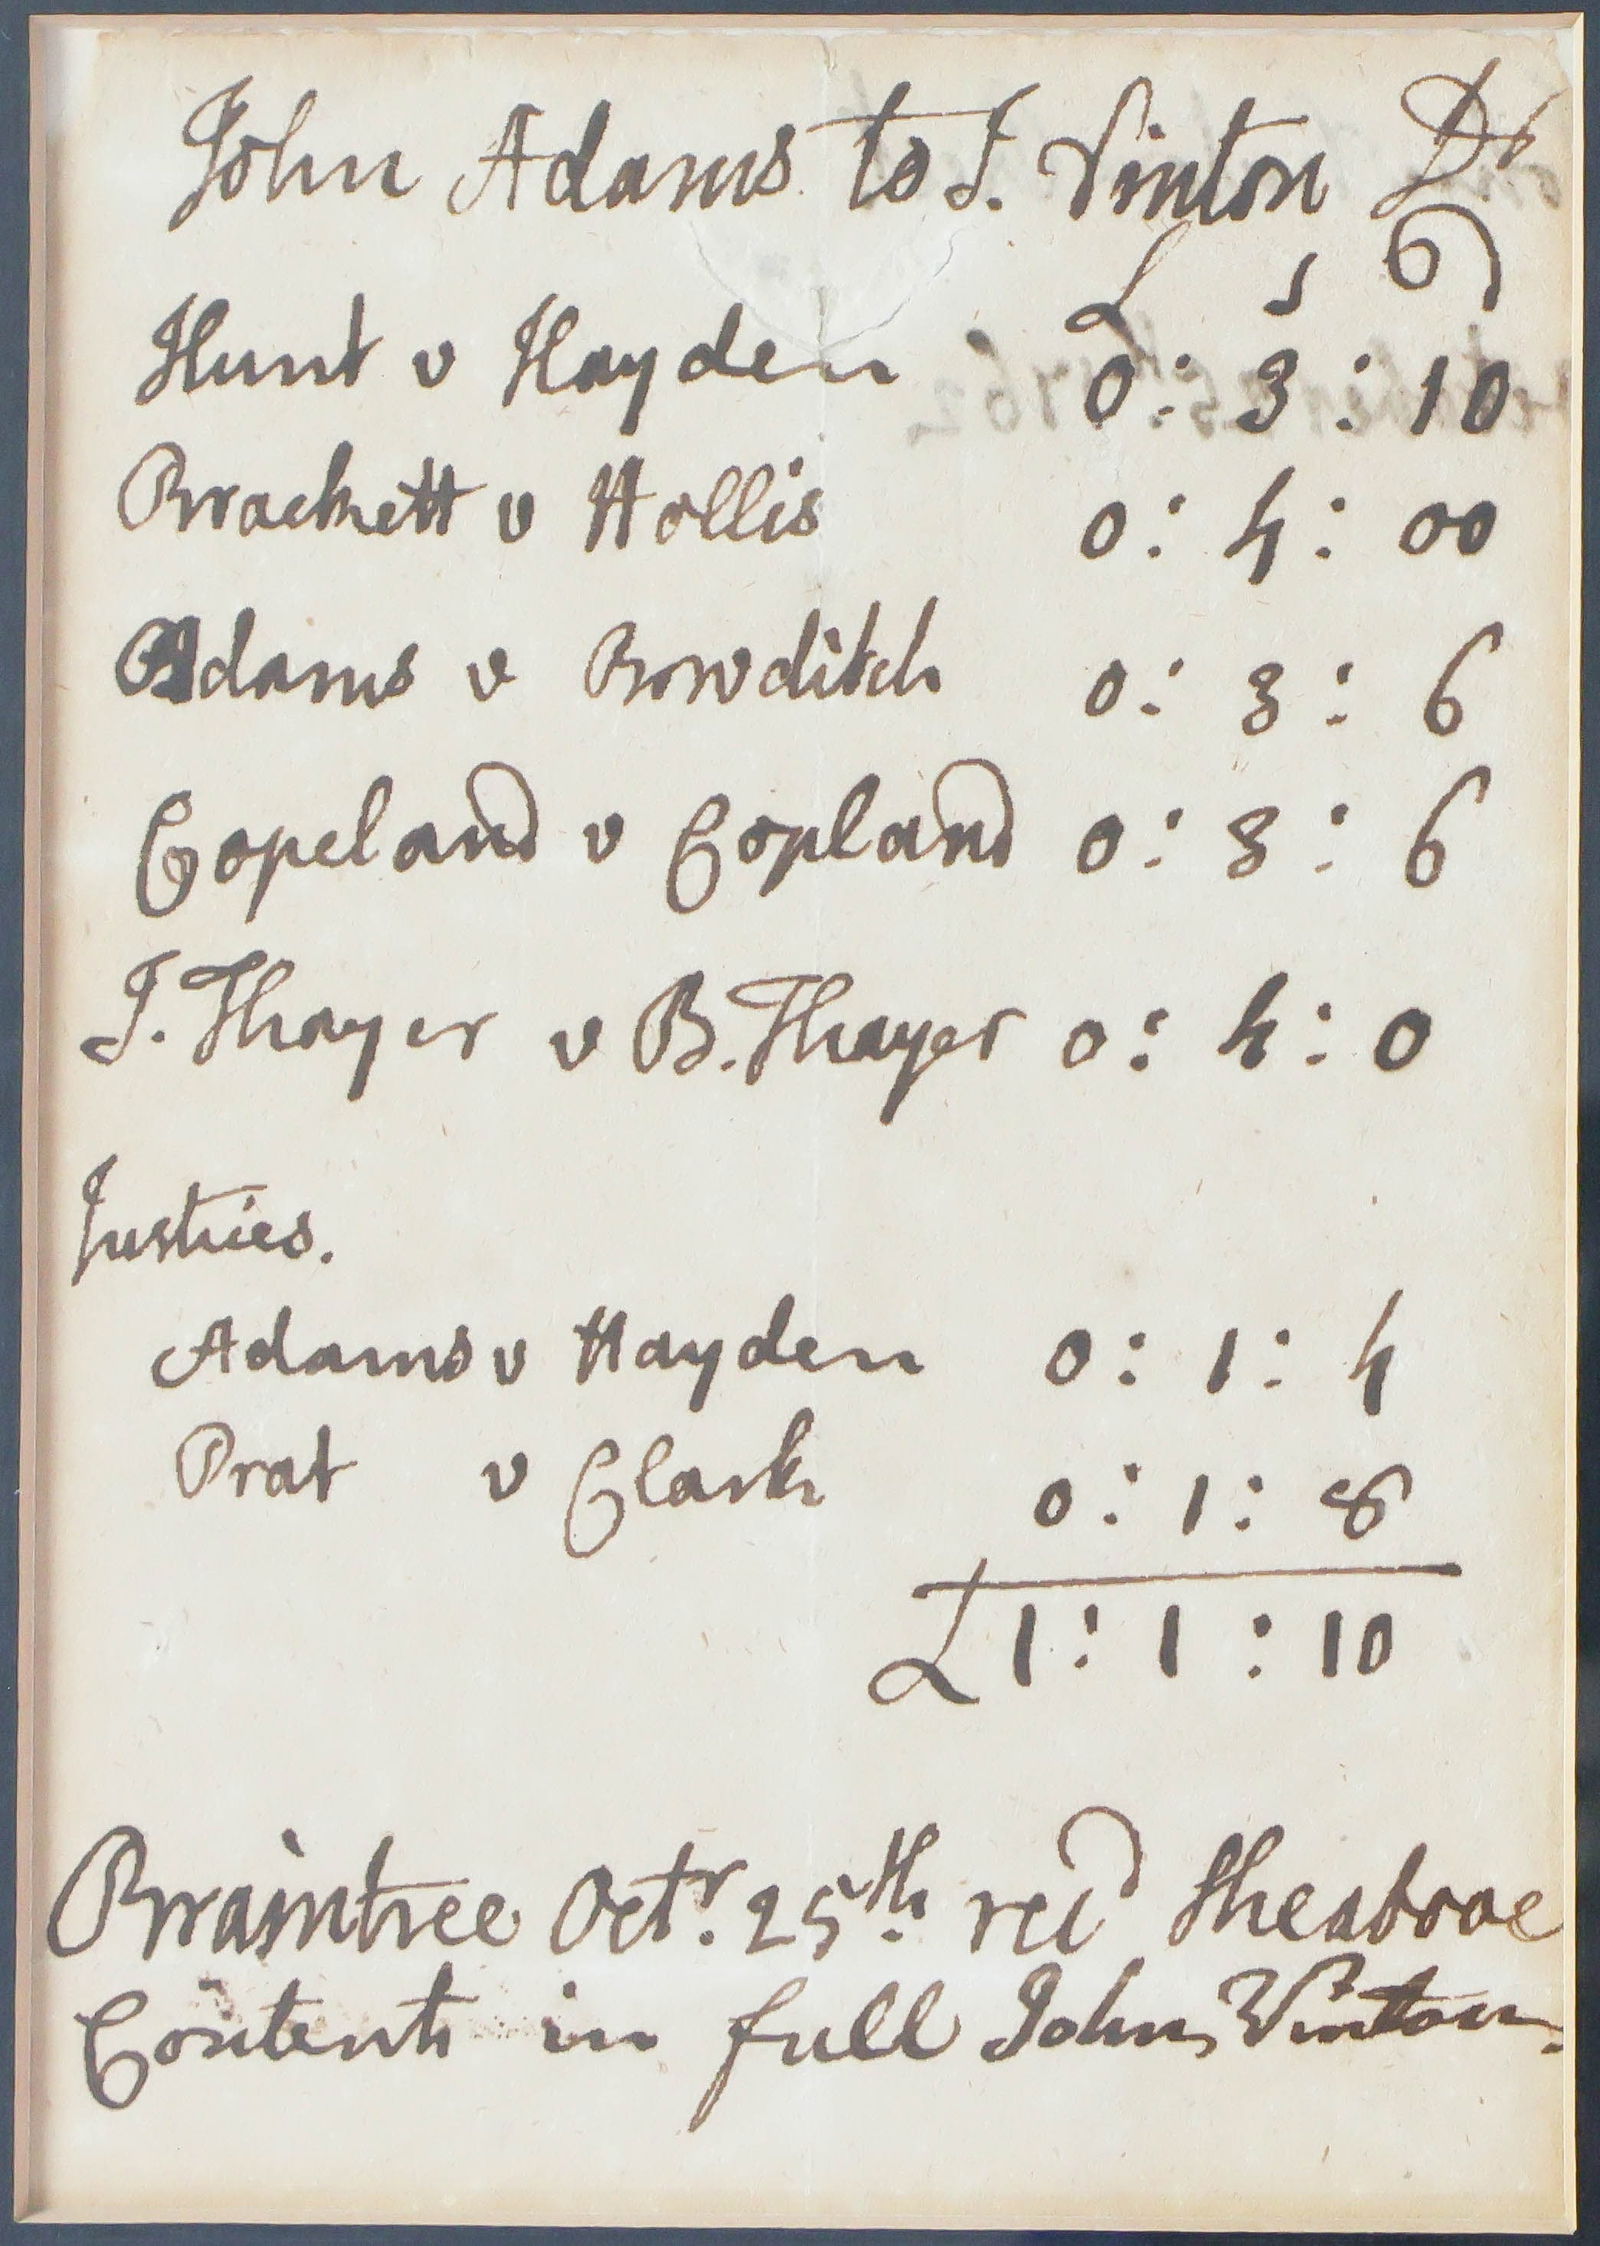 John Adams to J. Vinton Dr
£ s d
Hunt v Hayden 0: 3: 10
Brackett v Hollis 0: 4: 00
Adams v Bowditch 0: 3: 6
Copeland v Copland 0: 3: 6
J. Thayer v B. Thayer 0: 4: 0
Justices.
Adams v Hayden 0: 1: 4
Prat v Clark 0: 1: 8
£ 1: 1: 10
Braintree Octr. 25th. recd the above
Contents in full John Vinton